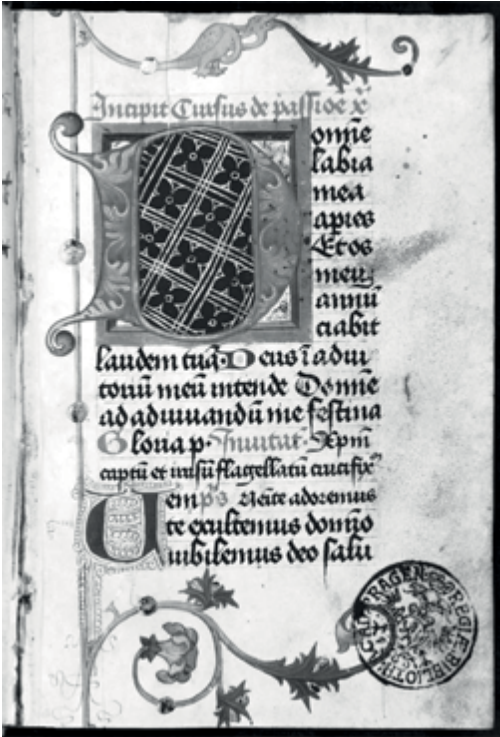 Incipit Cursus de passiōe xi
Domīe
labia
mea
apīes
Et os
meū
annū
ciabit
laudem tuā. Deus ī adiu
toriū meū intende Domīe
ad adiuuandū me festina
Gloria p. Inuitat. Xpm̄
captū et irrisū flagellatū crucifix
Uem ps Uenite adoremus
te exultemus domīo
iubilemus deo salu